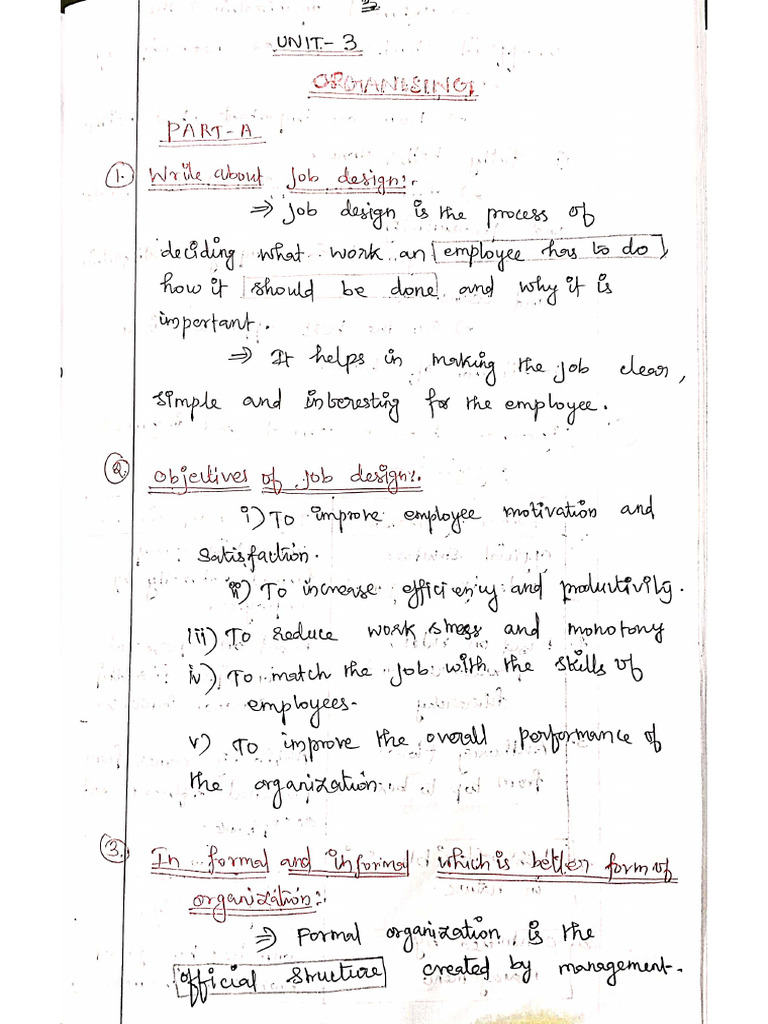 UNIT-3
ORGANISING
PART-A
1. Write about job design:-
⇒ Job design is the process of
deciding what work an employee has to do,
how it should be done and why it is
important.
⇒ It helps in making the job clear,
simple and interesting for the employee.
2. Objectives of job design:-
i) To improve employee motivation and
satisfaction.
ii) To increase efficiency and productivity.
iii) To reduce work stress and monotony
iv) To match the job with the skills of
employees-
v) To improve the overall performance of
the organization.
3. In formal and informal which is better form of
organization:-
⇒ Formal organization is the
official structure created by management.